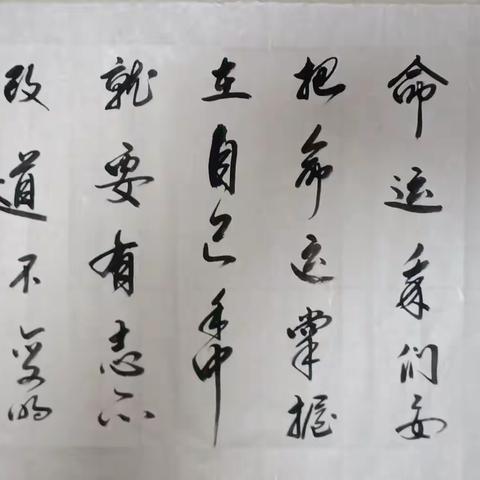 命运我们要
把命运掌握
在自己手中
就要有志不
改道不变的